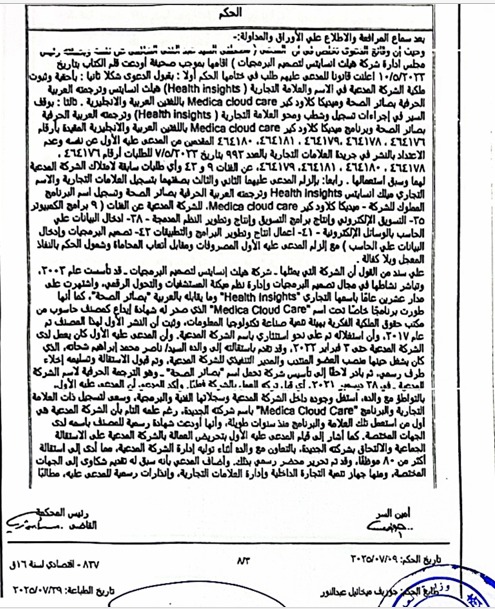 الحكم
بعد سماع المرافعة والاطلاع علي الأوراق والمداولة:
وحيث إن وقائع الدعوي تخلص في أن المدعي ( عن نفسه وبصفته رئيس
مجلس إدارة شركة هيلث انسايتس لتصميم البرمجيات ) اقامها بموجب صحيفة أودعت قلم الكتاب بتاريخ
١٠/٥/٢٠٢٣ اعلنت قانونا للمدعي عليهم طلب في ختامها الحكم أولا : بقبول الدعوى شكلا ثانيا : بأحقية وثبوت
ملكية الشركة المدعية في الاسم والعلامة التجارية ( Health insights ) هيلث انسايتس وترجمته العربية
الحرفية بصائر الصحة وميديكا كلاود كير Medica cloud care باللغتين العربية والانجليزية . ثالثا : بوقف
السير في إجراءات تسجيل وشطب ومحو العلامة التجارية ( Health insights ) وترجمته العربية الحرفية
بصائر الصحة وبرنامج ميديكا كلاود كير Medica cloud care باللغتين العربية والانجليزية المقيدة بأرقام
٤٦٤١٧٦، ٤٦٤١٧٨، ٤٦٤١٧٩، ٤٦٤١٨١، ٤٦٤١٨٠ المقدمين من المدعى عليه الأول عن نفسه وعدم
الاعتداد بالنشر في جريدة العلامات التجارية بالعدد ٩٩٣ بتاريخ ٧/٥/٢٠٢٣ للطلبات أرقام ٤٦٤١٧٦،
٤٦٤١٧٨، ٤٦٤١٧٩، ٤٦٤١٨١، عن الفئات ٩ و ٤٢ وأي طلبات سابقة لامتلاك الشركة المدعية
لهما وسبق استعمالها . رابعا: بإلزام المدعي عليهما الثاني والثالث بصفتهما بتسجيل العلامات التجارية والاسم
التجاري هيلث انسايتس Health Insights وترجمته العربية الحرفية بصائر الصحة وتسجيل اسم البرنامج
المملوك للشركة - ميديكا كلاود كير Medica cloud care. للشركة المدعية عن الفئات ( ٩ برامج الكمبيوتر
٣٥- التسويق الإلكتروني وإنتاج برامج التسويق وإنتاج وتطوير النظم المدمجة - ٣٨- ادخال البيانات علي
الحاسب بالوسائل الإلكترونية - ٤١- اعمال انتاج وتطوير البرامج والتطبيقات ٤٢- تصميم البرمجيات وإدخال
البيانات علي الحاسب ) مع إلزام المدعي عليه الأول المصروفات ومقابل أتعاب المحاماة وشمول الحكم بالنفاذ
المعجل وبلا كفالة .
علي سند من القول أن الشركة التي يمثلها – شركة هيلث إنسايتس لتصميم البرمجيات – قد تأسست عام ٢٠٠٣،
وتباشر نشاطها في مجال تصميم البرمجيات وإدارة نظم ميكنة المستشفيات والتحول الرقمي، واشتهرت على
مدار عشرين عامًا باسمها التجاري "Health Insights" وما يقابله بالعربية "بصائر الصحة". كما أنها
طورت برنامجًا خاصًا تحت اسم "Medica Cloud Care" الذي صدر له شهادة إيداع كمصنف حاسوب من
مكتب حقوق الملكية الفكرية بهيئة تنمية صناعة تكنولوجيا المعلومات، وثبت أن النشر الأول لهذا المصنف تم
عام ٢٠١٧، وأن استغلاله تم على نحو استئثاري باسم الشركة المدعية. وأن المدعى عليه الأول كان يعمل لدى
الشركة المدعية حتى ٣ فبراير ٢٠٢٣، وقد تقدم باستقالته إلى والده السيد/ ناصر محمد إبراهيم شحاته، الذي
كان يشغل حينها منصب العضو المنتدب والمدير التنفيذي للشركة المدعية، وتم قبول الاستقالة وتسليمه إخلاء
طرف رسمي، ثم بادر لاحقًا إلى تأسيس شركة تحمل اسم "بصائر الصحة" – وهو الترجمة الحرفية لاسم الشركة
المدعية – في ٢٨ ديسمبر ٢٠٢١، أي قبل تركه العمل بالشركة فعليًا. وأكد المدعي أن المدعى عليه الأول،
بالتواطؤ مع والده، استغل وجوده داخل الشركة المدعية وسجلاتها الفنية والبرمجية، وسعى لتسجيل ذات العلامة
التجارية والبرنامج "Medica Cloud Care" باسم شركته الجديدة، رغم علمه التام بأن الشركة المدعية هي
أول من استعمل تلك العلامة والبرنامج منذ سنوات طويلة، وأنها أودعت شهادة رسمية للمصنف باسمه لدى
الجهات المختصة. كما أشار إلى قيام المدعى عليه الأول بتحريض العمالة بالشركة المدعية على الاستقالة
الجماعية والالتحاق بشركته الجديدة، بالتعاون مع والده أثناء توليه إدارة الشركة المدعية، مما أدى إلى استقالة
أكثر من ٨٠ موظفًا، وقد تم تحرير محضر رسمي بذلك. وأضاف المدعي بأنه سبق له تقديم شكاوى إلى الجهات
المختصة، ومنها جهاز تنمية التجارة الداخلية وإدارة العلامات التجارية، وإنذارات رسمية للمدعى عليه، مطالبًا
أمين السر
رئيس المحكمة
القاضي
تاريخ الحكم: ٢٠٢٥/٠٧/٠٩
٨/٢
٨٢٧ - اقتصادي لسنة ١٦ق
طابع الحكم: جوزيف ميخائيل عبدالنور
تاريخ الطباعة: ٢٠٢٥/٠٧/٢٩
وزارة